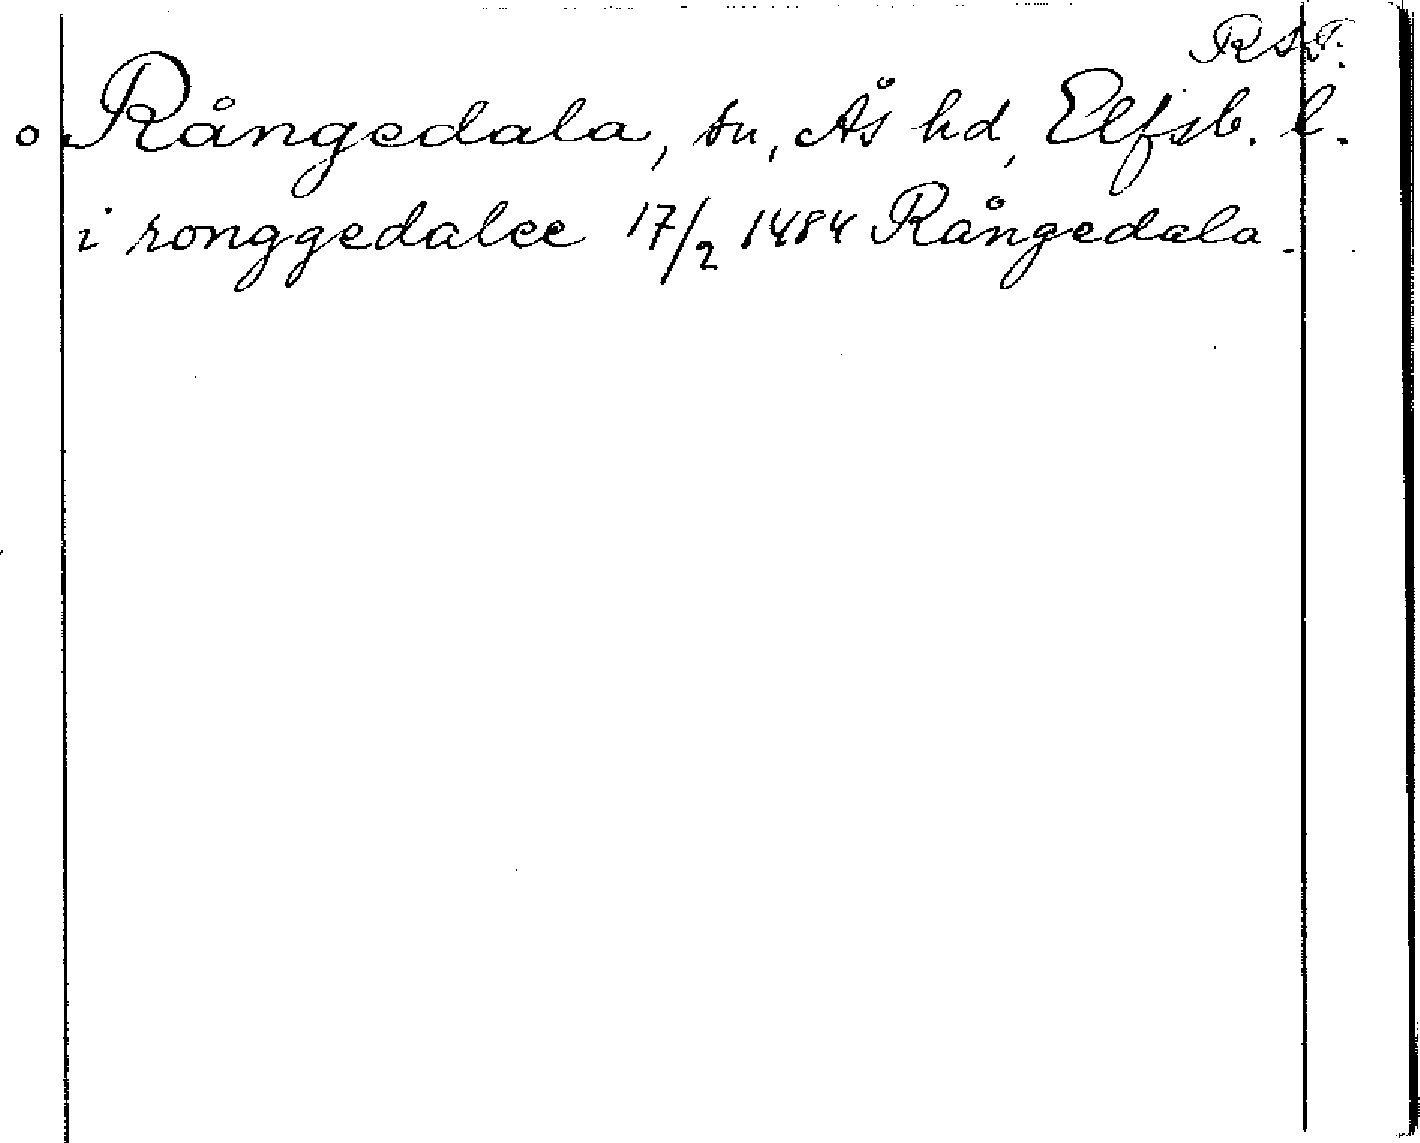 RST.
o Rångedala, sn, Ås hd, Elfsb. l.
i ronggedalee 17/2 1484 Rångedala.